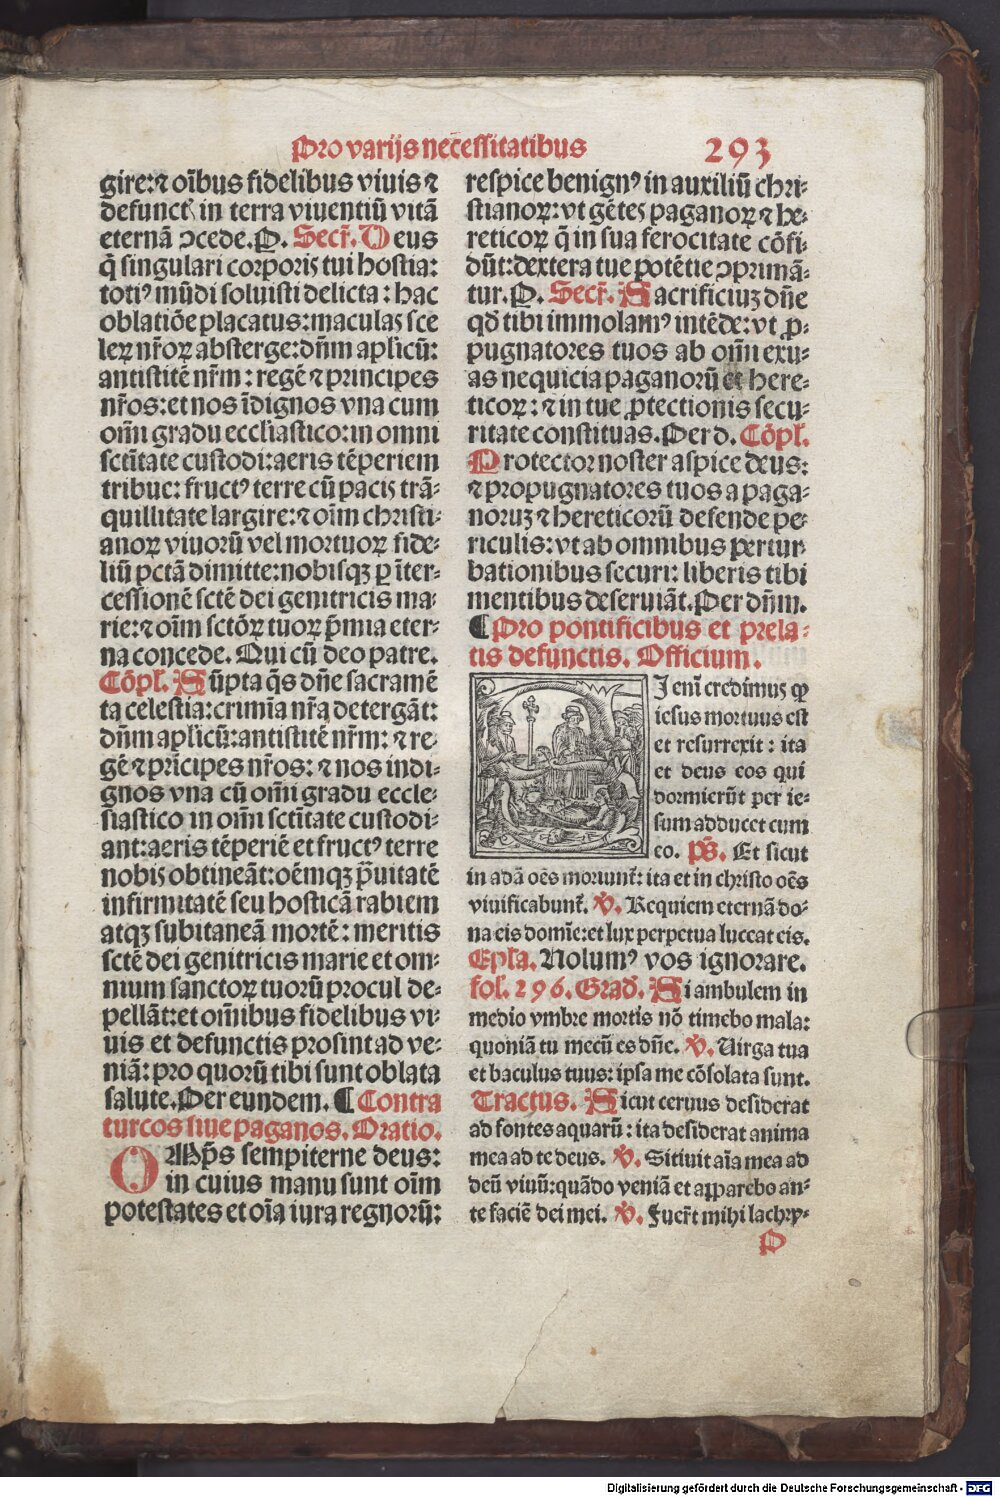 Pro varijs necẽssitatibus 293
gire: ⁊ oı̃bus fidelibus viuis ⁊
defunctꝭ in terra viuentiũ vitã
eternã ↄcede. P. Secř. Deus
q̃ singulari corporis tui hostia:
totiꝰ mũdi soluisti delicta: hac
oblatiõe placatus: maculas sce
leꝝ nřoꝝ absterge: dñm aplicũ:
antistitẽ nřm: regẽ ⁊ principes
nřos: et nos ı̃dignos vna cum
om̃i gradu eccl̃iastico: in omni
sctı̃tate custodi: aeris tẽperiem
tribue: fructꝰ terre cũ pacis trã-
quillitate largire: ⁊ oı̃m christi-
anoꝝ viuorũ vel mortuoꝝ fide-
liũ pctã dimitte: nobisqꝫ ꝑ ı̃ter-
cessionẽ sctẽ dei genitricis ma-
rie: ⁊ oı̃m sctõꝝ tuoꝝ p̃mia eter-
na concede. Qui cũ deo patre.
Cõpl. Sũpta q̃s dñe sacramẽ
ta celestia: crimı̃a nřa detergãt:
dñm aplicũ: antistitẽ nřm: ⁊ re-
gẽ ⁊ prı̃cipes nřos: ⁊ nos indi-
gnos vna cũ om̃i gradu eccle-
siastico in om̃i sctı̃tate custodi-
ant: aeris tẽperiẽ et fructꝰ terre
nobis obtineãt: oẽmqꝫ p̃uitatẽ
infirmitatẽ seu hosticã rabiem
atqꝫ subitaneã mortẽ: meritis
sctẽ dei genitricis marie et om-
nium sanctoꝝ tuorũ procul de-
pellãt: et om̃ibus fidelibus vi-
uis et defunctis prosint ad ve-
niã: pro quorũ tibi sunt oblata
salute. Per eundem. ¶ Contra
turcos siue paganos. Oratio.
OMp̃s sempiterne deus:
in cuius manu sunt oı̃m
potestates et oı̃a iura regnorũ:
respice benignꝰ in auxiliũ chri-
stianoꝝ: vt gẽtes paganoꝝ ⁊ he-
reticoꝝ q̃ in sua ferocitate cõfi-
dũt: dextera tue potẽtie ↄprimã-
tur. P. Secř. Sacrificiuꝫ dñe
qď tibi immolamꝰ intẽde: vt ꝓ-
pugnatores tuos ab om̃i exu-
as nequicia paganorũ et here-
ticoꝝ: ⁊ in tue ꝓtectionis secu-
ritate constituas. Per d. Cõpl.
Protector noster aspice deus:
⁊ propugnatores tuos a paga-
noruꝫ ⁊ hereticorũ defende pe-
riculis: vt ab omnibus pertur
bationibus securi: liberis tibi
mentibus deseruiãt. Per dñm.
¶ Pro pontificibus et prela-
tis defunctis. Officium.
I enı̃ credimus ꝙ
iesus mortuus est
et resurrexit: ita
et deus eos qui
dormierũt per ie-
sum adducet cum
eo. p̃s. Et sicut
in adã oẽs moriunť: ita et in christo oẽs
viuificabunť. ℣. Requiem eternã do-
na eis domı̃e: et lux perpetua luceat eis.
Epl̃a. Nolumꝰ vos ignorare.
fol. 296. Grad̃. Si ambulem in
medio vmbre mortis nõ timebo mala:
quoniã tu mecũ es dñe. ℣. Uirga tua
et baculus tuus: ipsa me cõsolata sunt.
Tractus. Sicut ceruus desiderat
ad fontes aquarũ: ita desiderat anima
mea ad te deus. ℣. Sitiuit aı̃a mea ad
deũ viuũ: quãdo veniã et apparebo an-
te faciẽ dei mei. ℣. Fueřt mihi lachry-
P
Digitalisierung gefördert durch die Deutsche Forschungsgemeinschaft - DFG